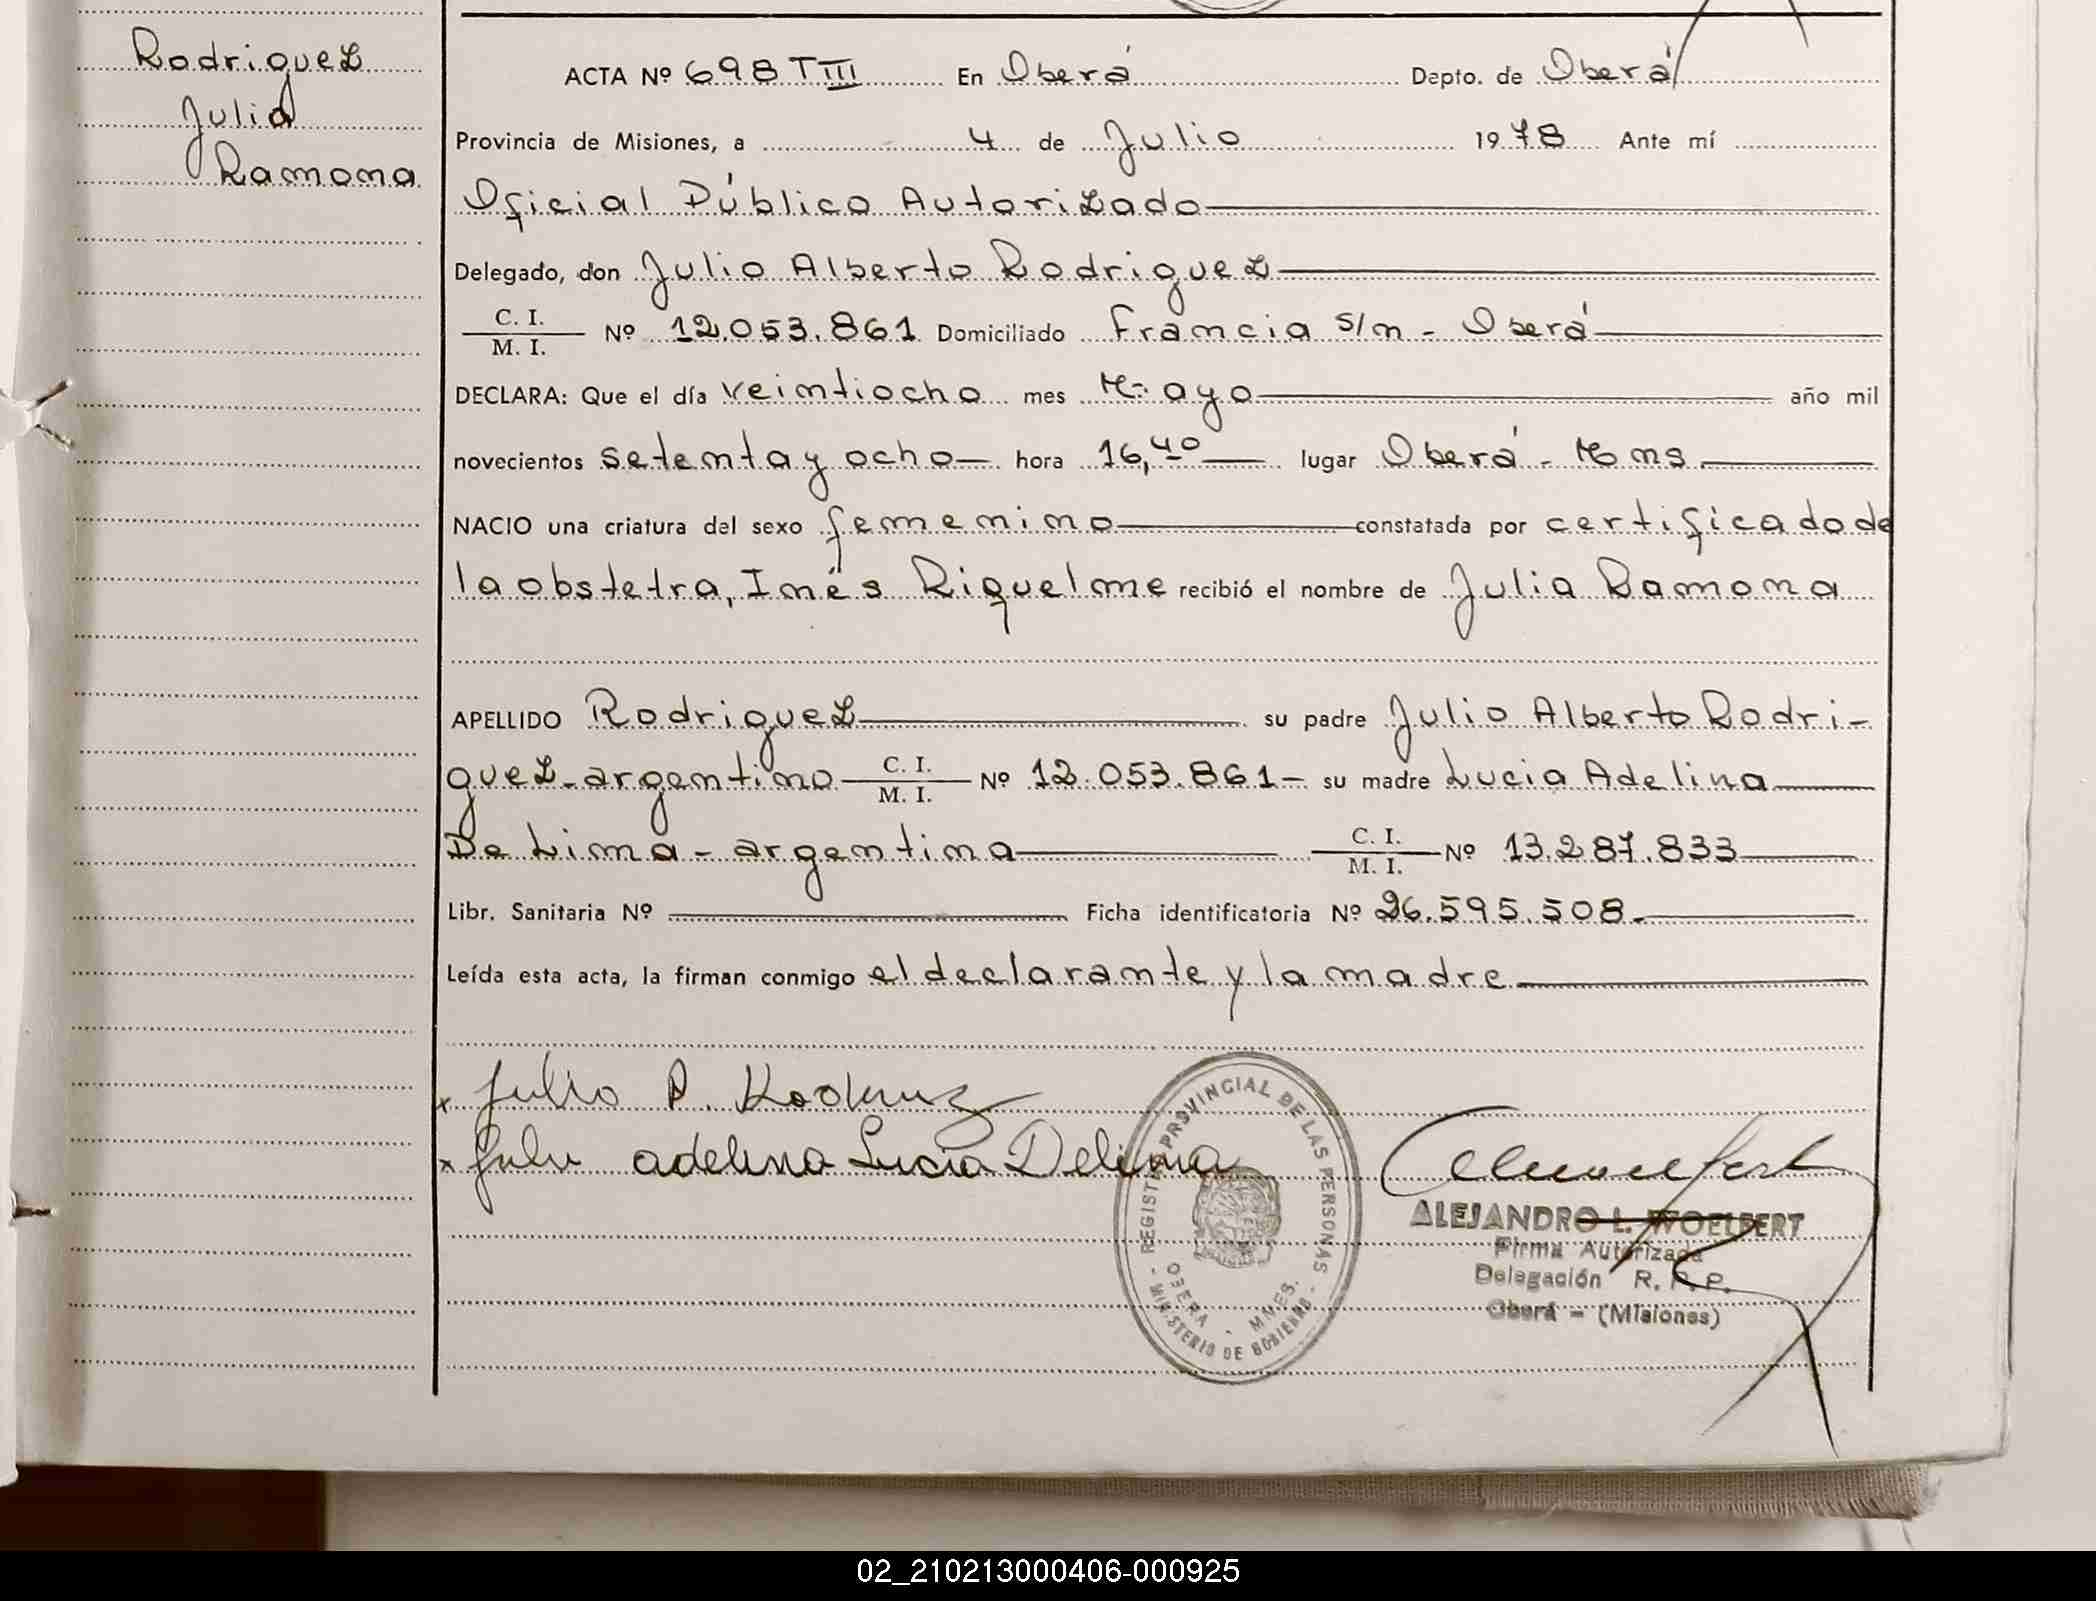 Rodriguez
Julia
Ramona
ACTA Nº 698 TIII En Oberá Depto. de Oberá
Provincia de Misiones, a 4 de Julio 1978 Ante mí
Oficial Público Autorizado
Delegado, don Julio Alberto Rodriguez
C. I.
M. I. Nº 12.053.861 Domiciliado Francia s/n - Oberá
DECLARA: Que el día veintiocho mes Mayo año mil
novecientos setenta y ocho hora 16,40 lugar Oberá - Mns
NACIO una criatura del sexo femenino constatada por certificado de
la obstetra, Inés Riquelme recibió el nombre de Julia Ramona
APELLIDO Rodriguez su padre Julio Alberto Rodri-
guez - argentino C. I. M. I. Nº 12.053.861 - su madre Lucia Adelina
De Lima - argentina C. I. M. I. Nº 13.287.833
Libr. Sanitaria Nº Ficha identificatoria Nº 26.595.508.
Leída esta acta, la firman conmigo el declarante y la madre
x Julio A. Rodriguez
x adelina Lucia Delima
REGISTRO PROVINCIAL DE LAS PERSONAS
OBERA - MNES.
- MINISTERIO DE GOBIERNO -
ALEJANDRO L. WOELFERT
Firma Autorizada
Delegación R. P. P.
Oberá - (Misiones)
02_210213000406-000925